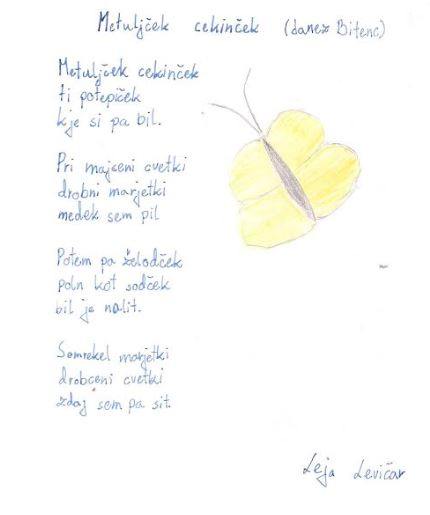 Metuljček cekinček (Janez Bitenc)
Metuljček cekinček
ti potepiček
kje si pa bil.
Pri majceni cvetki
drobni marjetki
medek sem pil
Potem pa želodček
poln kot sodček
bil je nalit.
Semrekel marjetki
drobceni cvetki
zdaj sem pa sit.
Leja Levičar